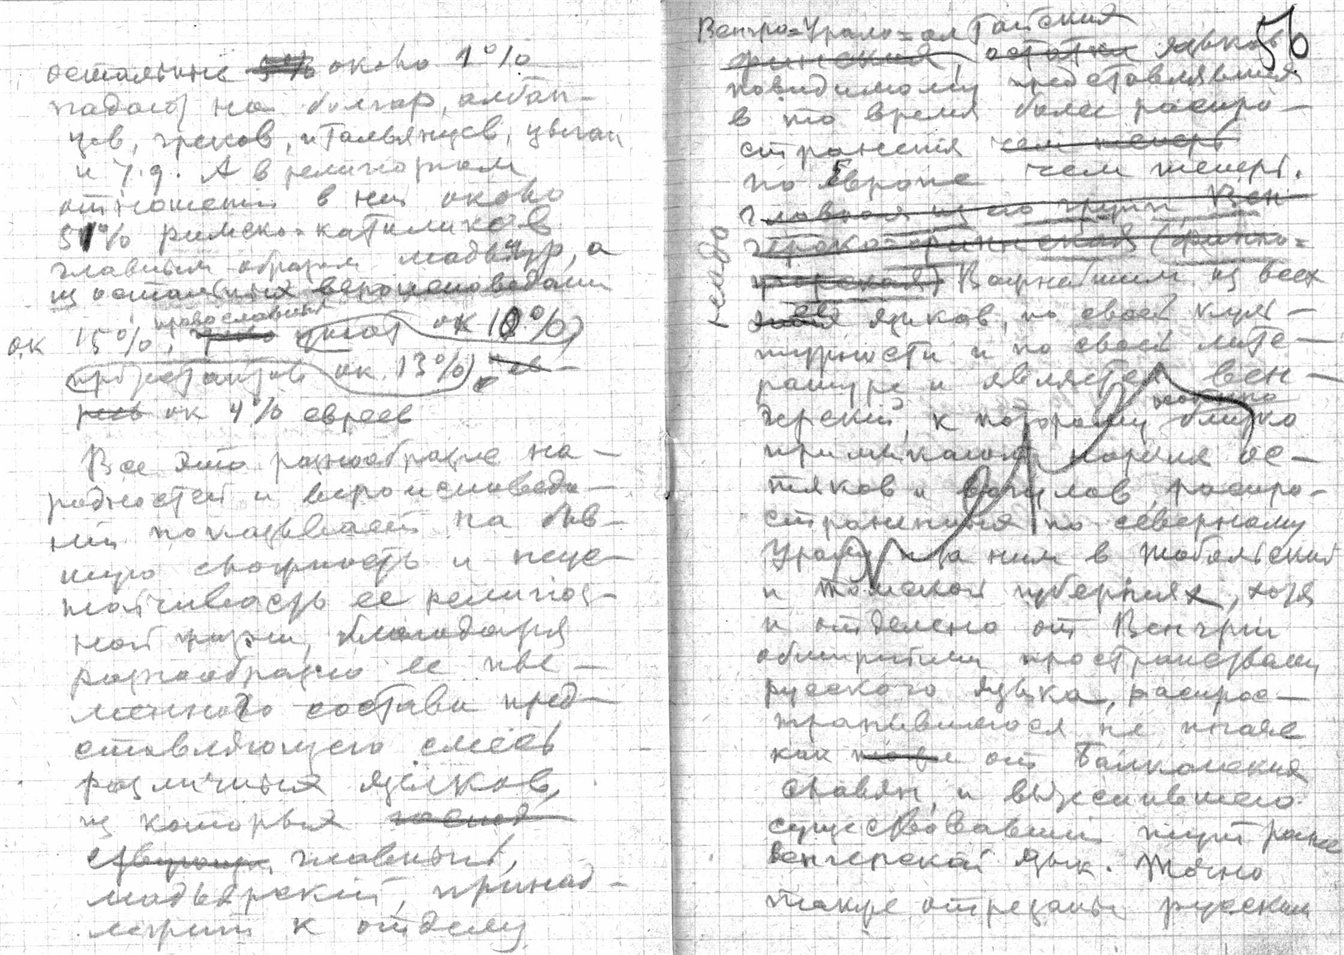 остальные около 1%
падают на болгар, албан-
цев, греков, итальянцев, цыган
и т.д. А в религиозном
отношении в ней около
51% римско-католиков
главным образом мадьяр, а
из остальных вероисповеданий
ок 15% православных ок 10%
протестантов ок. 13%
ок 4% евреев
Все это разнообразие на-
родностей и вероисповеда-
ний показывает на быв-
шую сложность и неус-
тойчивость ее религиоз-
ной жизни, благодаря
разнообразию ее пле-
менного состава пред-
ставляющего смесь
различных языков,
из которых
главный,
мадьярский, принад-
лежит к отделу
56
Венгро-Урало-алтайских
языков
повидимому представлявших
в то время более распро-
странения чем теперь
по Европе чем теперь.
главная из его групп, Вен-
герскофинская (финно-
Важнейшим из всех
языков, по своей куль-
турности и по своей лите-
ратуре и является вен-
герский, к которому близко
примыкают наречия ос-
тяков и вогулов, распро-
страненных по северному
Уралу и за ним в Тобольской
и Томской губерниях, хотя
и отделено от Венгрии
обширными пространствами
русского языка, распрос-
транившегося не иначе
как от Балканских
славян, и вытеснившего
существовавший тут ранее
венгерский язык. Точно
также отрезаны русским